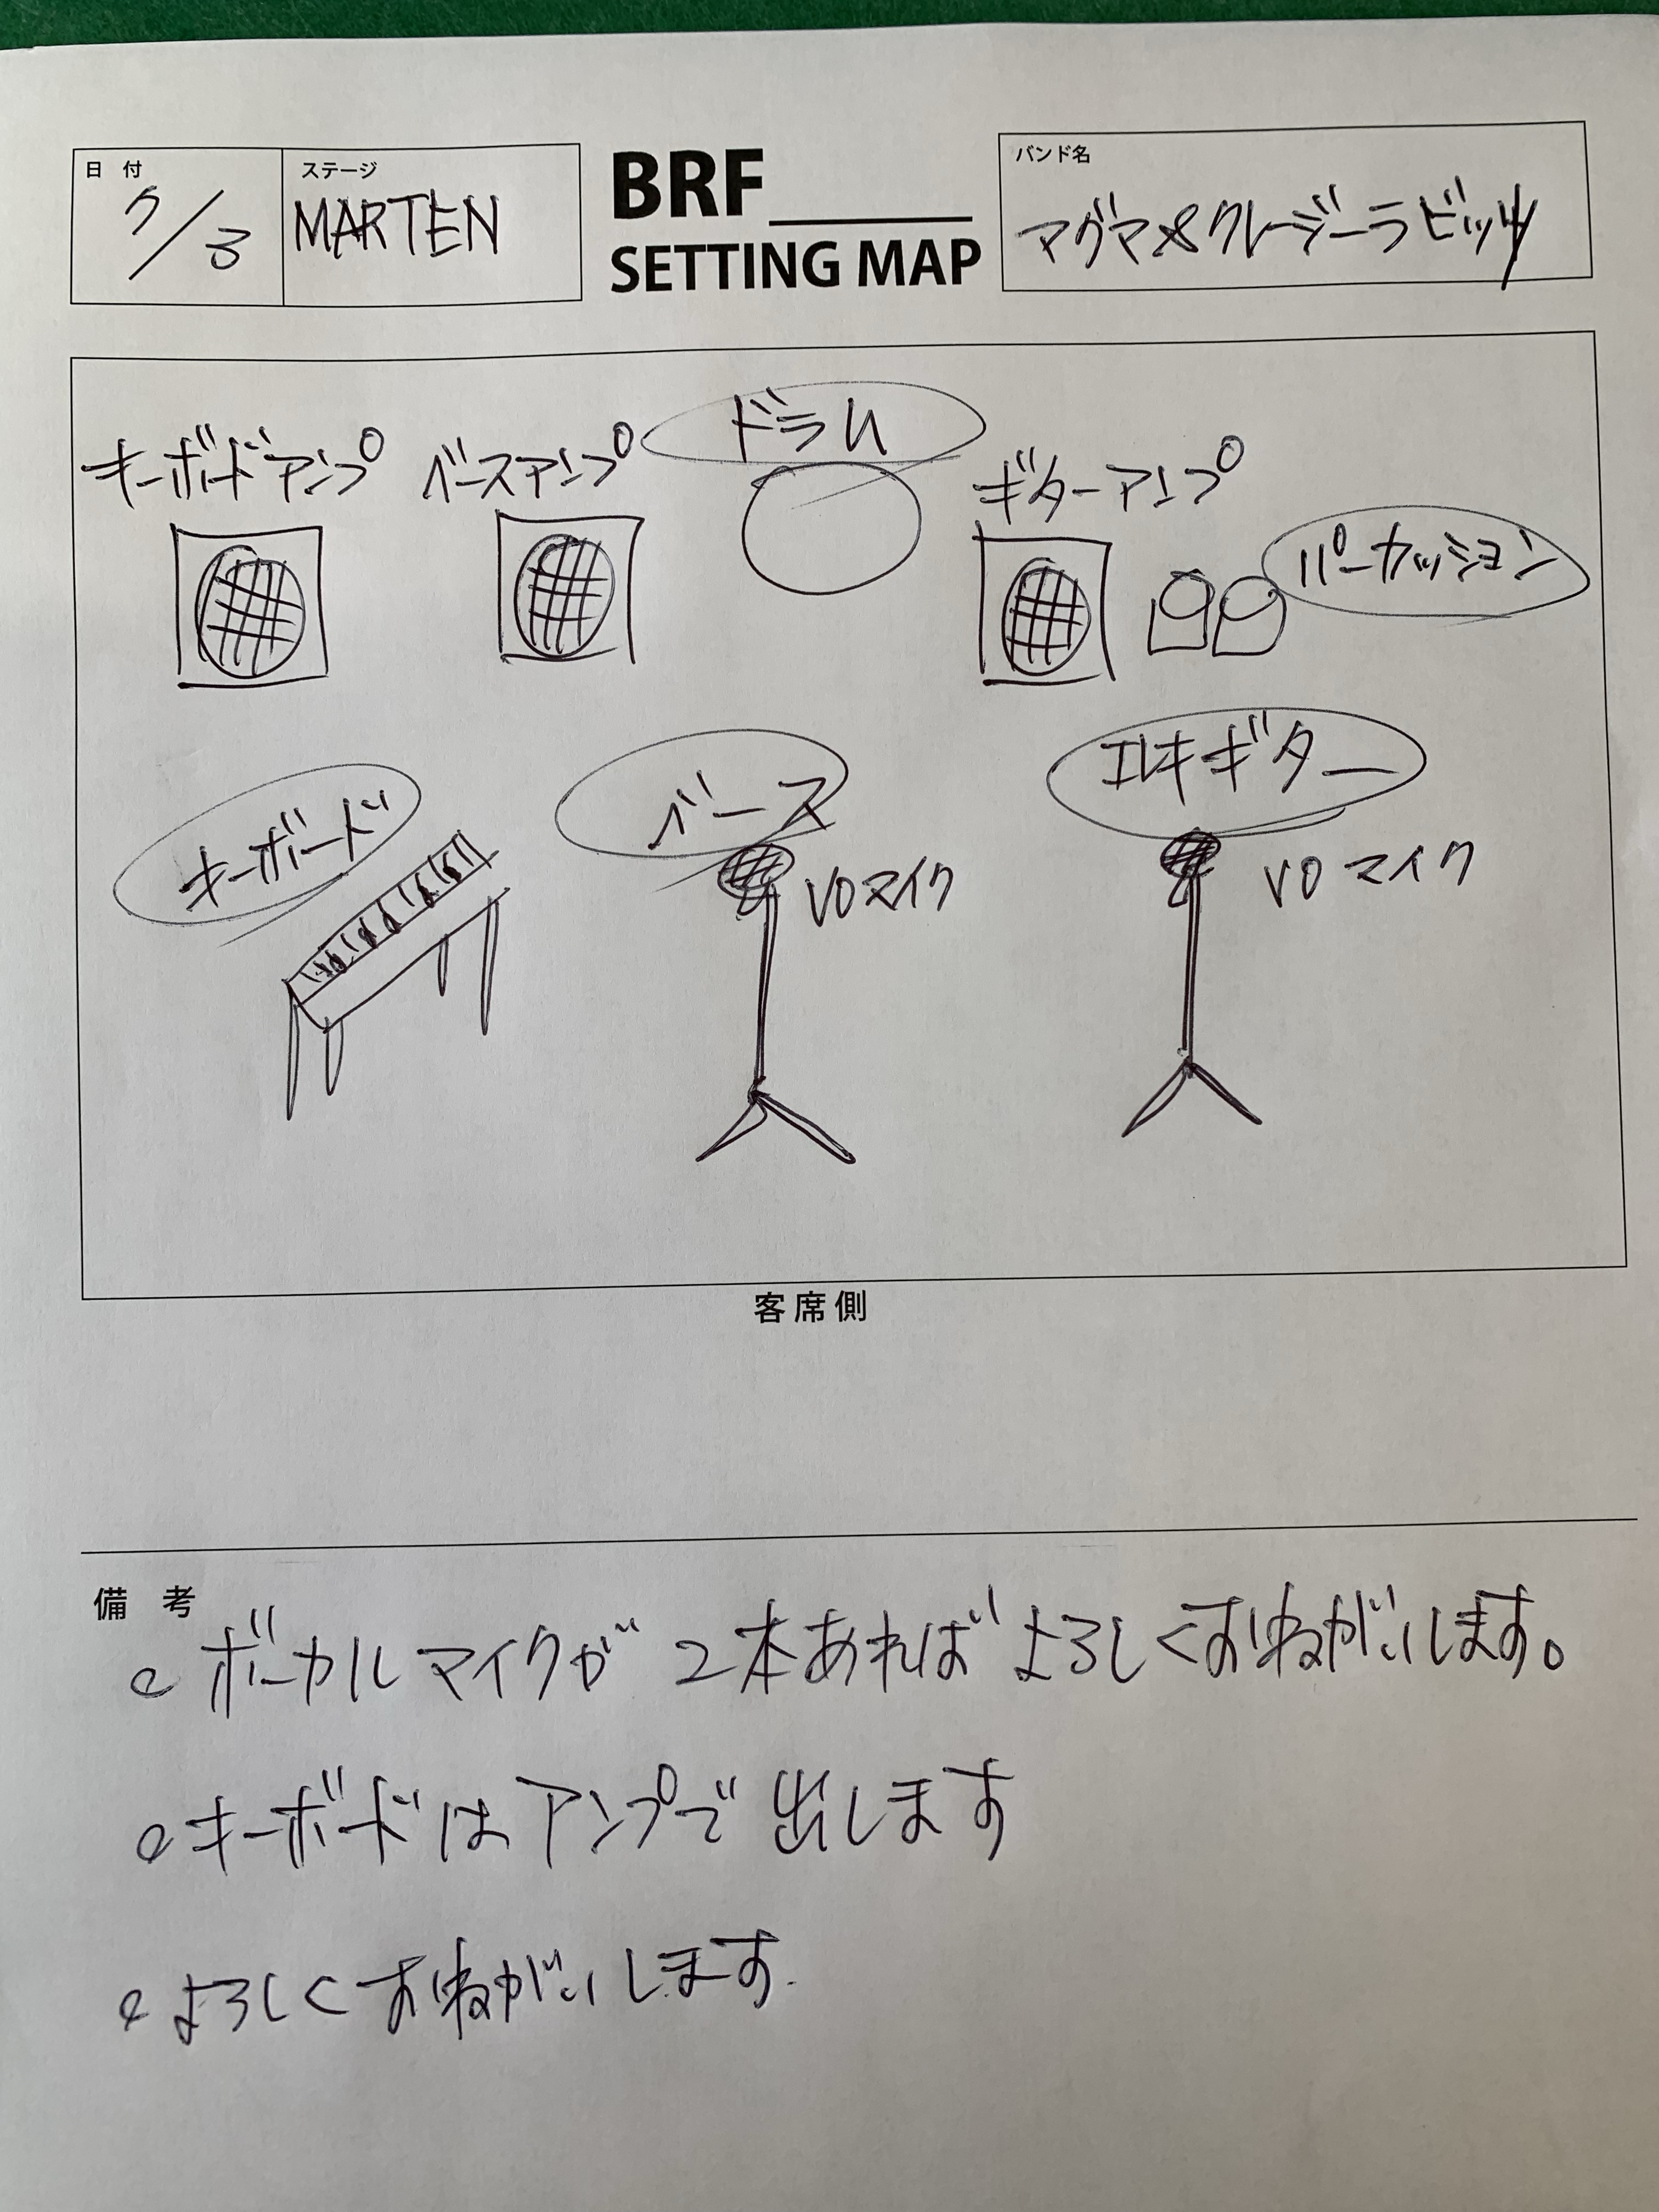 日 付
7/3
ステージ
MARTEN
BRF
SETTING MAP
バンド名
マグマ&クレージーラビッツ
ドラム
キーボードアンプ ベースアンプ ギターアンプ
パーカッション
キーボード ベース エレキギター
VOマイク VOマイク
客席側
備 考
・ボーカルマイクが2本あればよろしくおねがいします。
・キーボードはアンプで出します
・よろしくおねがいします.